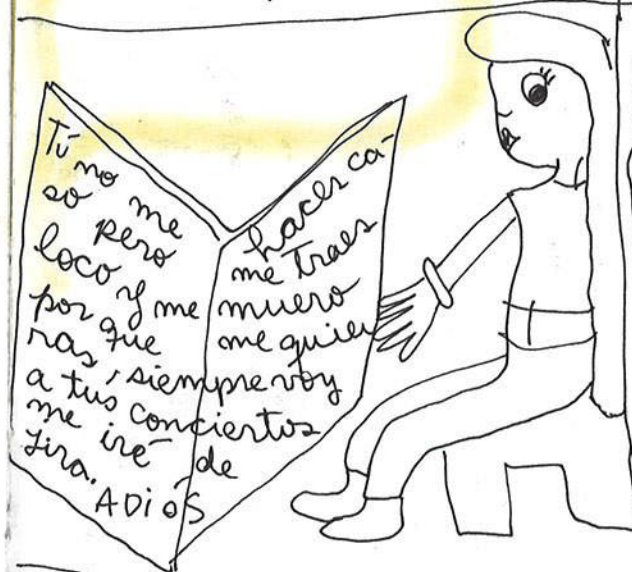 Tú no me haces ca-
so pero me traes
loco y me muero
por que me quie
ras, siempre voy
a tus conciertos
me iré de
gira.
ADiÓS